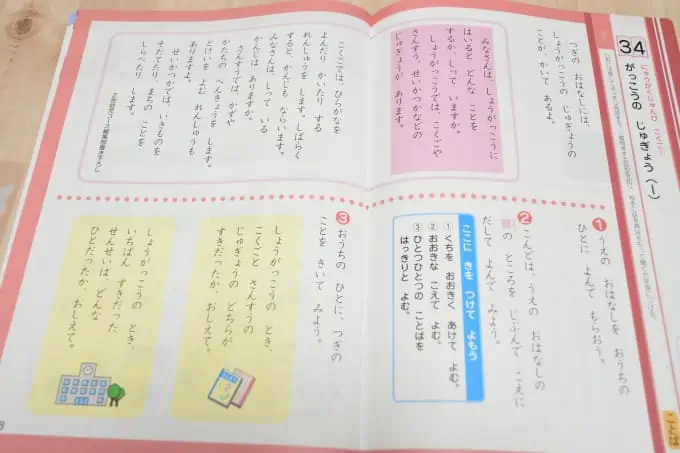 34
にゅうがくじゅんび こくご
がっこうの じゅぎょう(1)
つぎの おはなしには、
しょうがっこうの じゅぎょうの
ことが、かいて あるよ。
みなさんは、しょうがっこうに
はいると どんな ことを
するか、しって いますか。
しょうがっこうでは、こくごや
さんすう、せいかつかなどの
じゅぎょうが あります。
こくごでは、ひらがなを
よんだり かいたり する
れんしゅうを します。しばらく
すると、かんじも ならいます。
みなさんは、しって いる
かんじは ありますか。
さんすうでは、かずや
かたちの べんきょうを します。
とけいを よむ れんしゅうも
ありますよ。
せいかつかでは、いきものを
そだてたり、まちの ことを
しらべたり します。
Z会幼児コース編集部書き下ろし
❶うえの おはなしを おうちの
ひとに よんで もらおう。
❷こんどは、うえの おはなしの
の ところを じぶんで こえに
だして よんで みよう。
ここに きを つけて よもう
①くちを おおきく あけて よむ。
②おおきな こえで よむ。
③ひとつひとつの ことばを
はっきりと よむ。
❸おうちの ひとに、つぎの
ことを きいて みよう。
しょうがっこうの とき、
こくごと さんすうの
じゅぎょうの どちらが
すきだったか、おしえて。
しょうがっこうの とき、
いちばん すきだった
せんせいは、どんな
ひとだったか、おしえて。
ことば